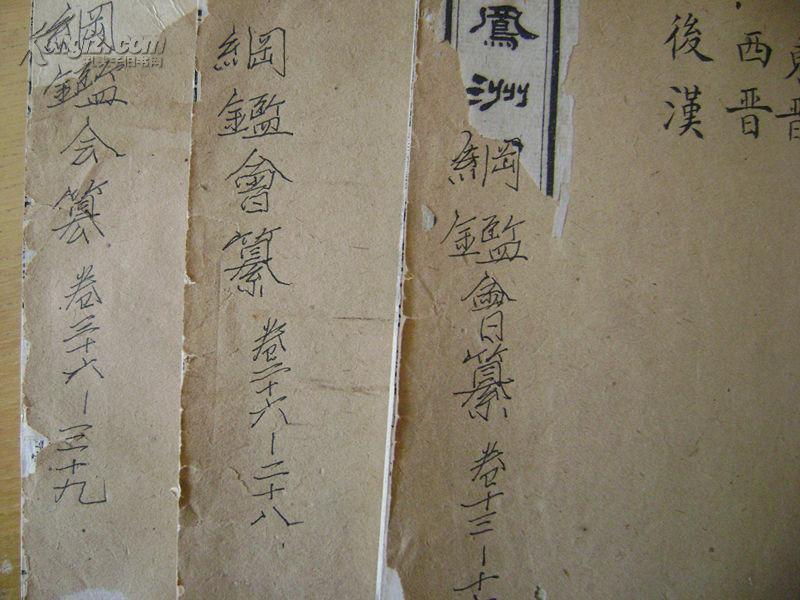 東晋
西晋
後漢
鳳洲
綱鑑會纂 卷十三-十
綱鑑會纂 卷二十六-二十八
綱鑑会纂 卷三十六-三十九